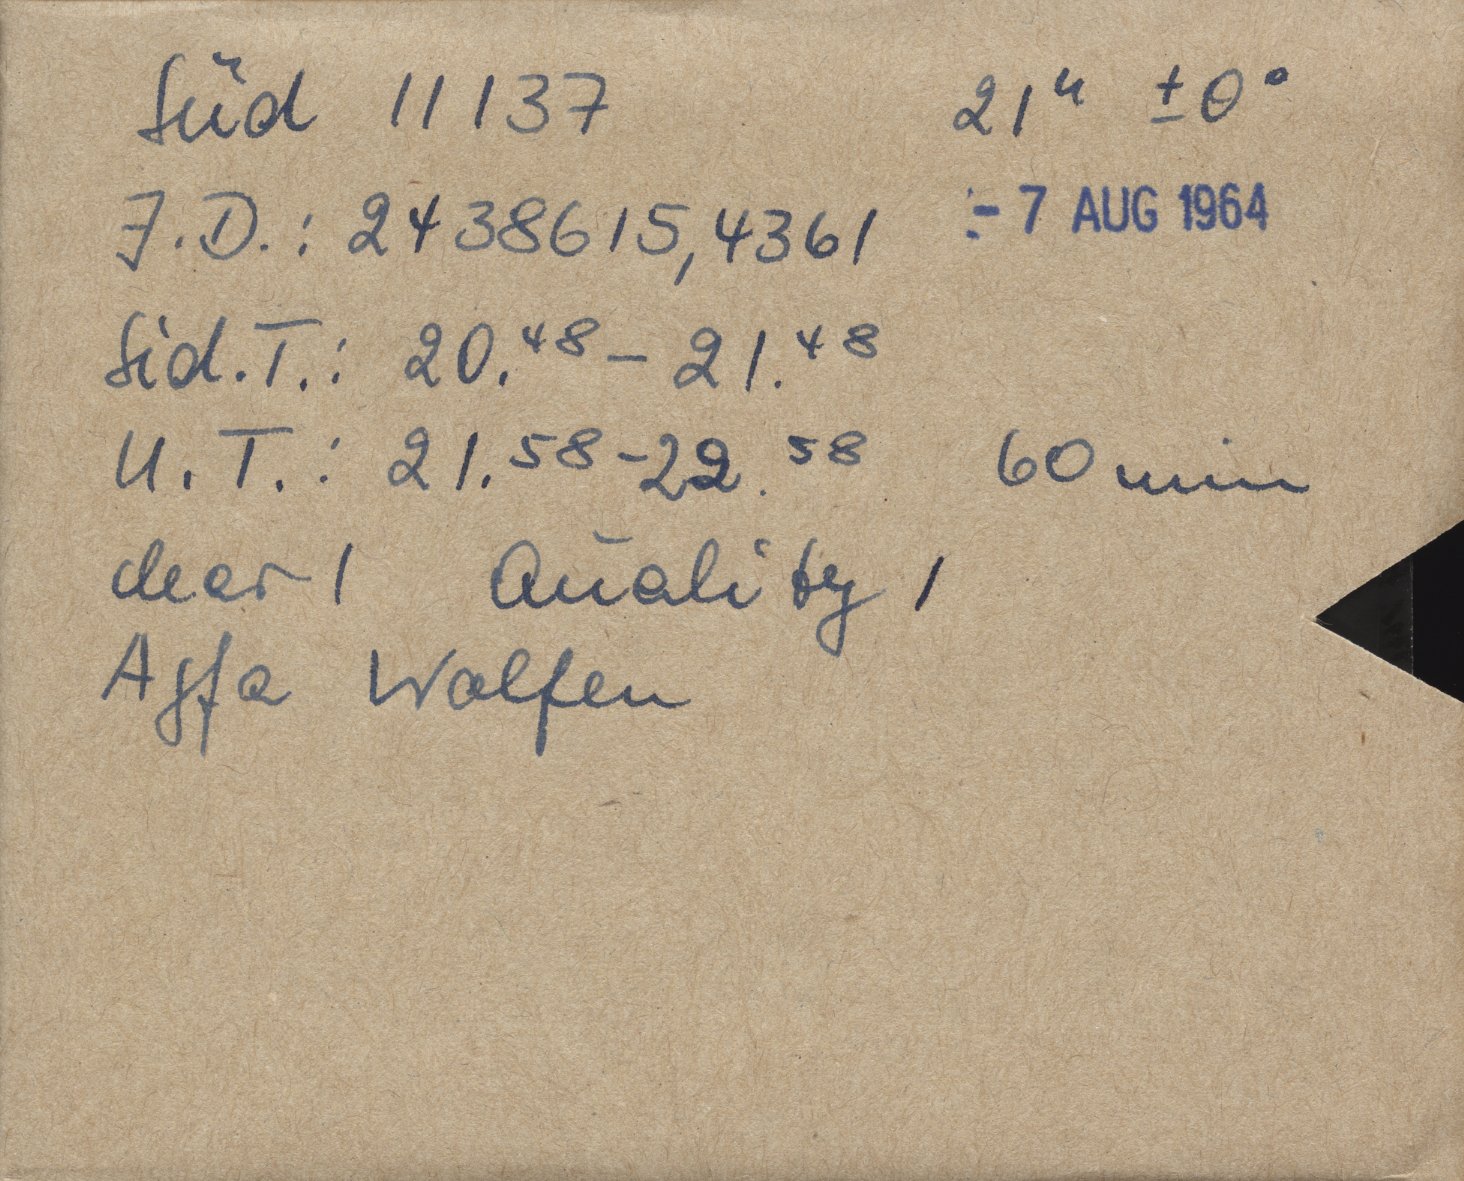 Süd 11137 21ʰ ±0°
J.D.: 2438615,4361 - 7 AUG 1964
Sid.T.: 20.⁴⁸ - 21.⁴⁸
U.T.: 21.⁵⁸ - 22.⁵⁸ 60 min
clear 1 Quality 1
Agfa Wolfen